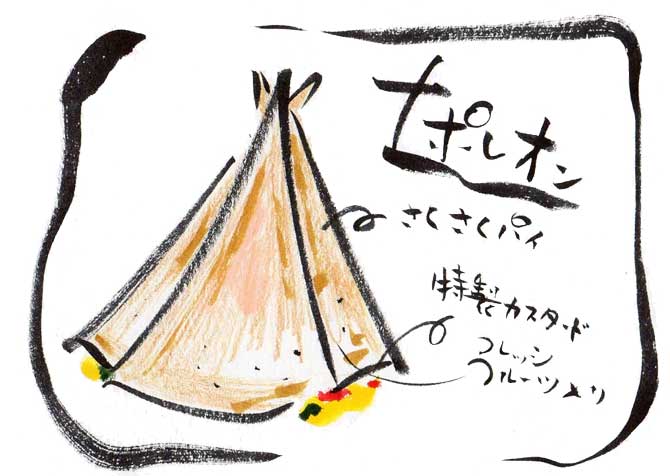 ナポレオン
さくさくパイ
特製カスタード
フレッシ
フルーツ入り